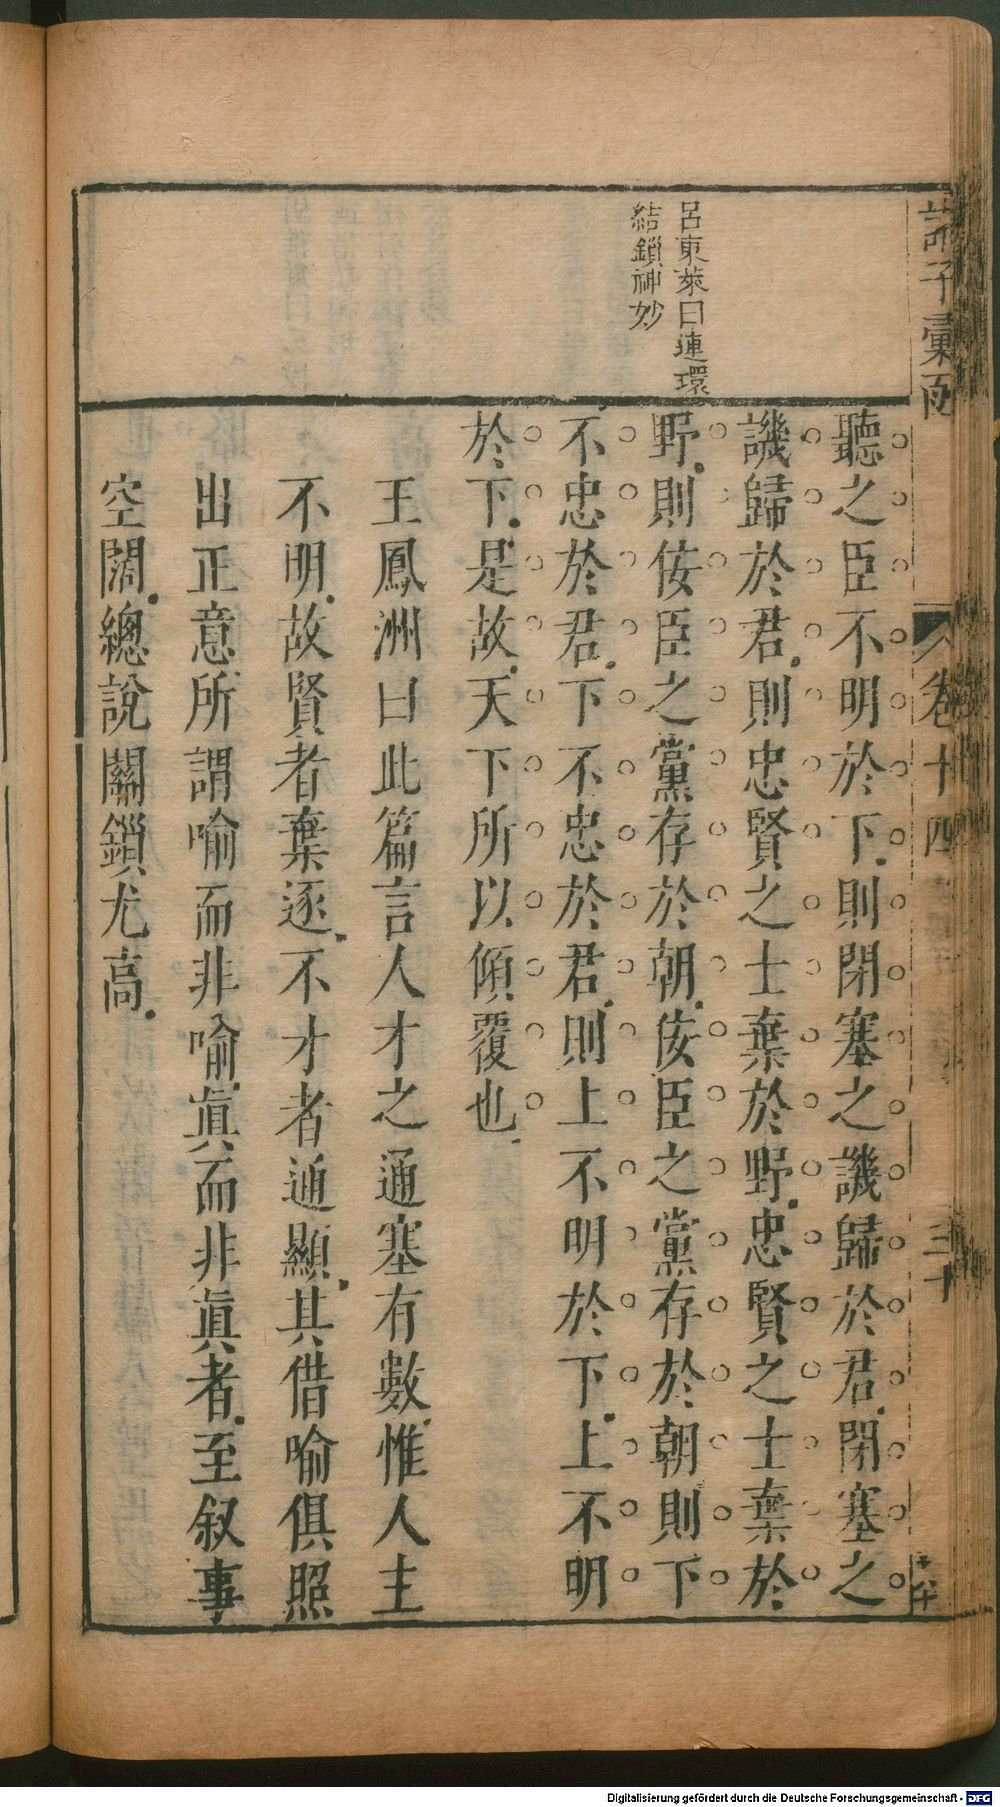 諸子彙函
卷十四
三十
呂東萊曰連環
結鎖神妙
聽之臣不明於下則閉塞之譏歸於君閉塞之
譏歸於君則忠賢之士棄於野忠賢之士棄於
野則佞臣之黨存於朝佞臣之黨存於朝則下
不忠於君下不忠於君則上不明於下上不明
於下是故天下所以傾覆也
王鳳洲曰此篇言人才之通塞有數惟人主
不明故賢者棄逐不才者通顯其借喻俱照
出正意所謂喻而非喻眞而非眞者至叙事
空闊總說關鎖尤高
Digitalisierung gefördert durch die Deutsche Forschungsgemeinschaft - DFG